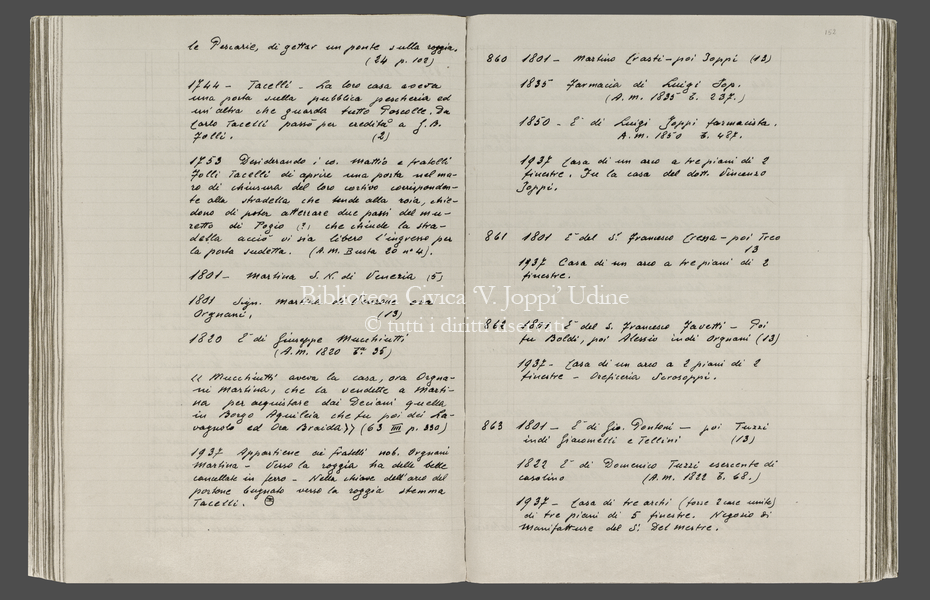 le Pescarie, di gettar un ponte sulla roggia.
(24 p. 102)
1744 - Tacelli - La loro casa aveva
una porta sulla pubblica pescheria ed
un'altra che guarda tutto Poscolle. Da
Carlo Tacelli passò per eredità a G.B.
Zolli. (2)
1753 Desiderando i co. Mattio e fratelli
Zolli Tacelli di aprire una porta nel mu-
ro di chiusura del loro cortivo corrisponden-
te alla stradella che tende alla roia, chie-
dono di poter atterrare due passi del mu-
retto di Pogio (?) che chiude la stra-
della acciò vi sia libero l'ingresso per
la porta sudetta. (A.M. Busta 20 n° 4).
1801 - Martina S.N. di Venezia (5)
1801 Sign. Martina di Venzone ora
Orgnani, (13)
1820 E' di Giuseppe Mucchiutti
(A.M. 1820 35)
(( Mucchiutti aveva la casa, ora Orgna-
ni Martina, che la vendette a Marti-
na per acquistare dai Deciani quella
in Borgo Aquileia che fu poi dei La-
vagnolo ed ora Braida )) (63 III p. 330)
1937 Appartiene ai fratelli nob. Orgnani
Martina - Verso la roggia ha delle belle
cancellate in ferro - Nella chiave dell'arco del
portone bugnato verso la roggia stemma
Tacelli.
153
860 1801 - Martino Crasti - poi Joppi (13)
1835 Farmacia di Luigi Jop.
(A.M. 1835 t. 237.)
1850 - E' di Luigi Joppi farmacista.
A.M. 1850 t. 487.
1937 Casa di un arco a tre piani di 2
finestre. Fu la casa del dott. Vincenzo
Joppi.
861 1801 E' del Sr. Francesco Cressa - poi Treo
13
1937 Casa di un arco a tre piani di 2
finestre.
Biblioteca Civica 'V. Joppi' Udine
© tutti i diritti riservati
862 1801 E' del S. Francesco Zavetti - Poi
fu Boldi, poi Alessio indi Orgnani (13)
1937 - Casa di un arco a 2 piani di 2
finestre - Oreficeria Seroseppi.
863 1801 - E' di Gio. Pontoni - poi Tuzzi
indi Giacomelli e Tellini (13)
1822 E' di Domenico Tuzzi esercente di
casolino (A.M. 1822 t. 68.)
1937 - Casa di tre archi (forse 2 case unite)
di tre piani di 5 finestre. Negozio di
Manifatture del S. Del Mestre.